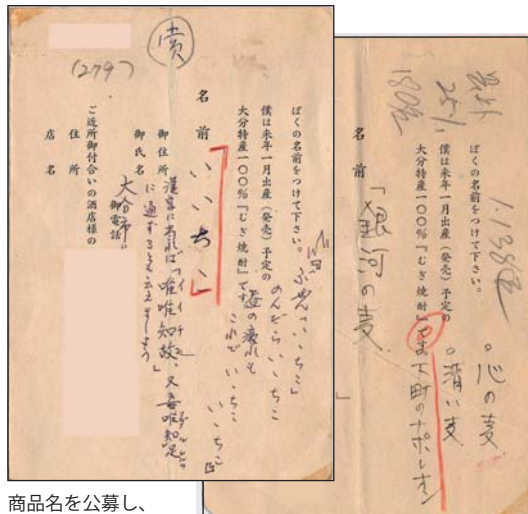 賞
(279)
ぼくの名前をつけて下さい。
僕は来年一月出産(発売)予定の
大分特産一〇〇%『むぎ焼酎』です
名前
「いいちこ」
「いいちこ」
のんだらいいちこ
の疲れも
これでいいちこ
いいちこ
御住所
御氏名
御電話
漢字に当れば「唯唯知故」、又吾唯知足
に通ずるとも云えましょう」
大分市
ご近所御付合いの酒店様の
住所
店名
1.138通
県外
25%
180通
ぼくの名前をつけて下さい。
僕は来年一月出産(発売)予定の
大分特産一〇〇%『むぎ焼酎』です
。心の麦
。清い麦
下町のナポレオン
名前
「銀河の麦」
商品名を公募し、